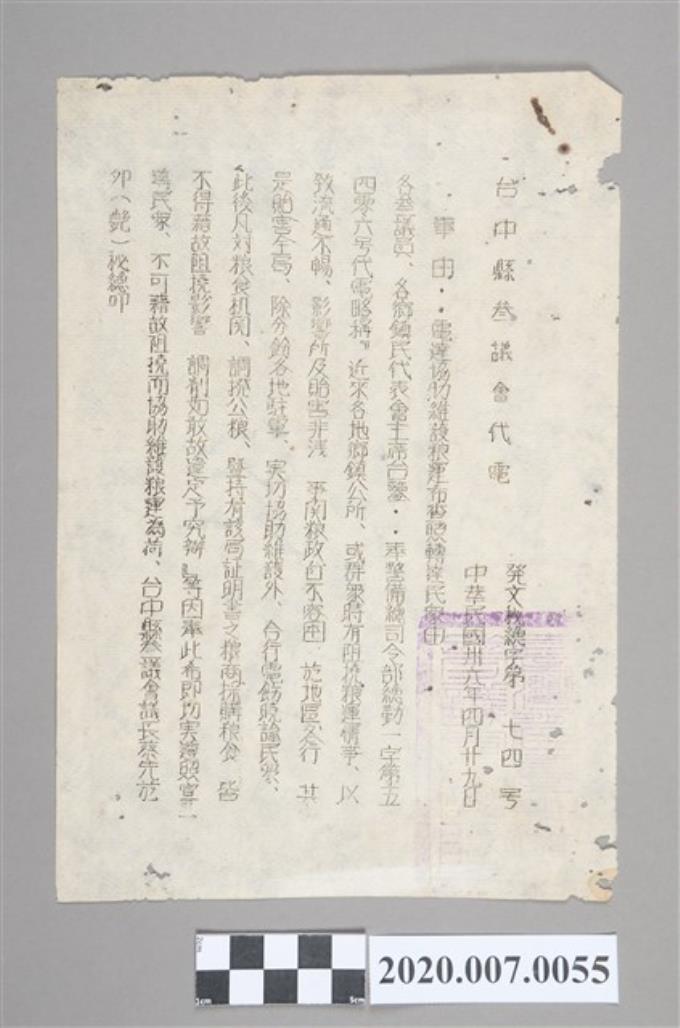 台中縣参議會代電
発文秘總字第 七四号
中華民國卅八年四月廿九日
事由：電達協助維護粮運布查照轉達民眾由
各参議員、各鄉鎮民代表會主席台鑒：奉警備總司令部總勤一字第五
四零六号代電略稱『近來各地鄉鎮公所、或群眾時有阻挠粮運情事、以
致流通不暢、影響所及貽害非浅 事関粮政 不容 於地區 行 其
是貽害全局、除分飭各地駐軍、実切協助維護外、合行電飭曉諭民眾、
此後凡对粮食机関、調撥公粮、暨持有該局証明書之粮商採購粮食 皆
不得藉故阻挠影響 調剂如敢故違定予究辦』等因奉此希即切実遵照宣
達民眾、不可藉故阻挠而協助維護粮運為荷、台中縣参議會議長蔡先於
卯（艶）秘總叩
2020.007.0055
2cm
1cm
5cm